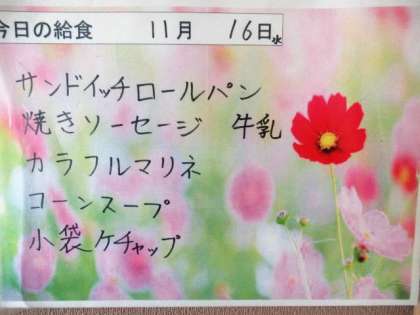 今日の給食 11月 16日水
サンドイッチロールパン
焼きソーセージ 牛乳
カラフルマリネ
コーンスープ
小袋ケチャップ